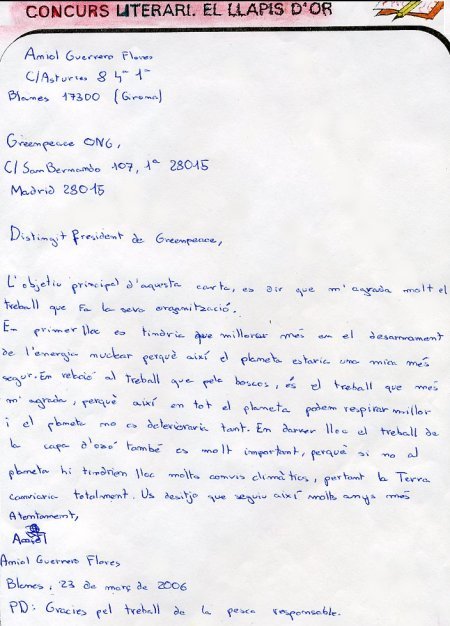 CONCURS LITERARI. EL LLAPIS D'OR
Amiol Guerrero Flores
C/Asturies 8 4rt 1a
Blanes 17300 (Girona)
Greenpeace ONG,
C/ San Bernando 107, 1a 28015
Madrid 28015
Distingit President de Greenpeace,
L'objetiu principel d'aquesta carta, es dir que m'agrada molt el
treball que Fa la seva organització.
En primer lloc es tindria que millorar més en el desarmament
de l'energia nuclear perquè així el planeta estaria una mica més
segur. En relació al treball que pels boscos, és el treball que més
m'agrada, perquè així en tot el planeta podem respirar millor
i el planeta no es deterioraria tant. En darrer lloc el treball de
la capa d'ozó també es molt important, perquè si no al
planeta hi tindrien lloc molts canvis climàtics, portant la Terra
canviaria totalment. Us desitjo que seguiu així molts anys més
Atentament,
Amiol Guerrero Flores
Blanes, 23 de març de 2006
PD: Gracies pel treball de la pesca responsable.